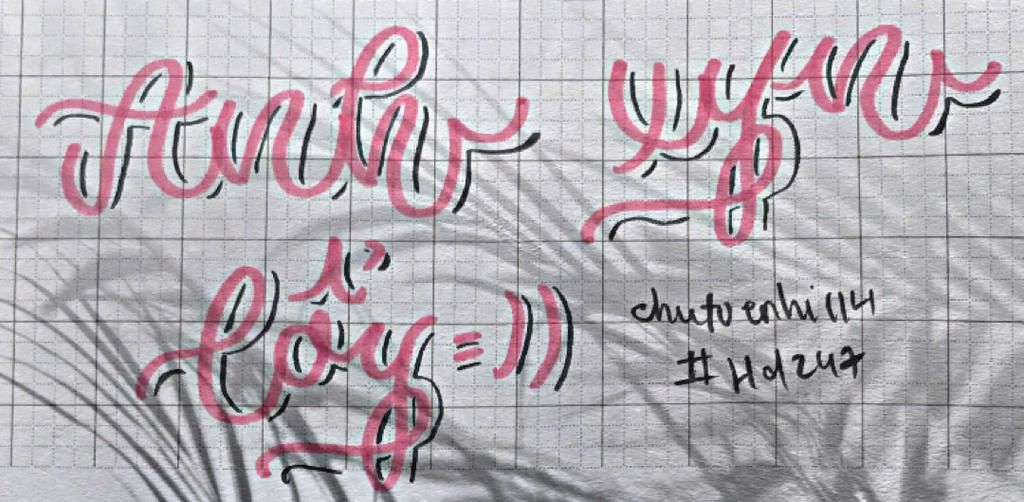 Anh xyn
lổy =))
chutuenhi114
#Hd247